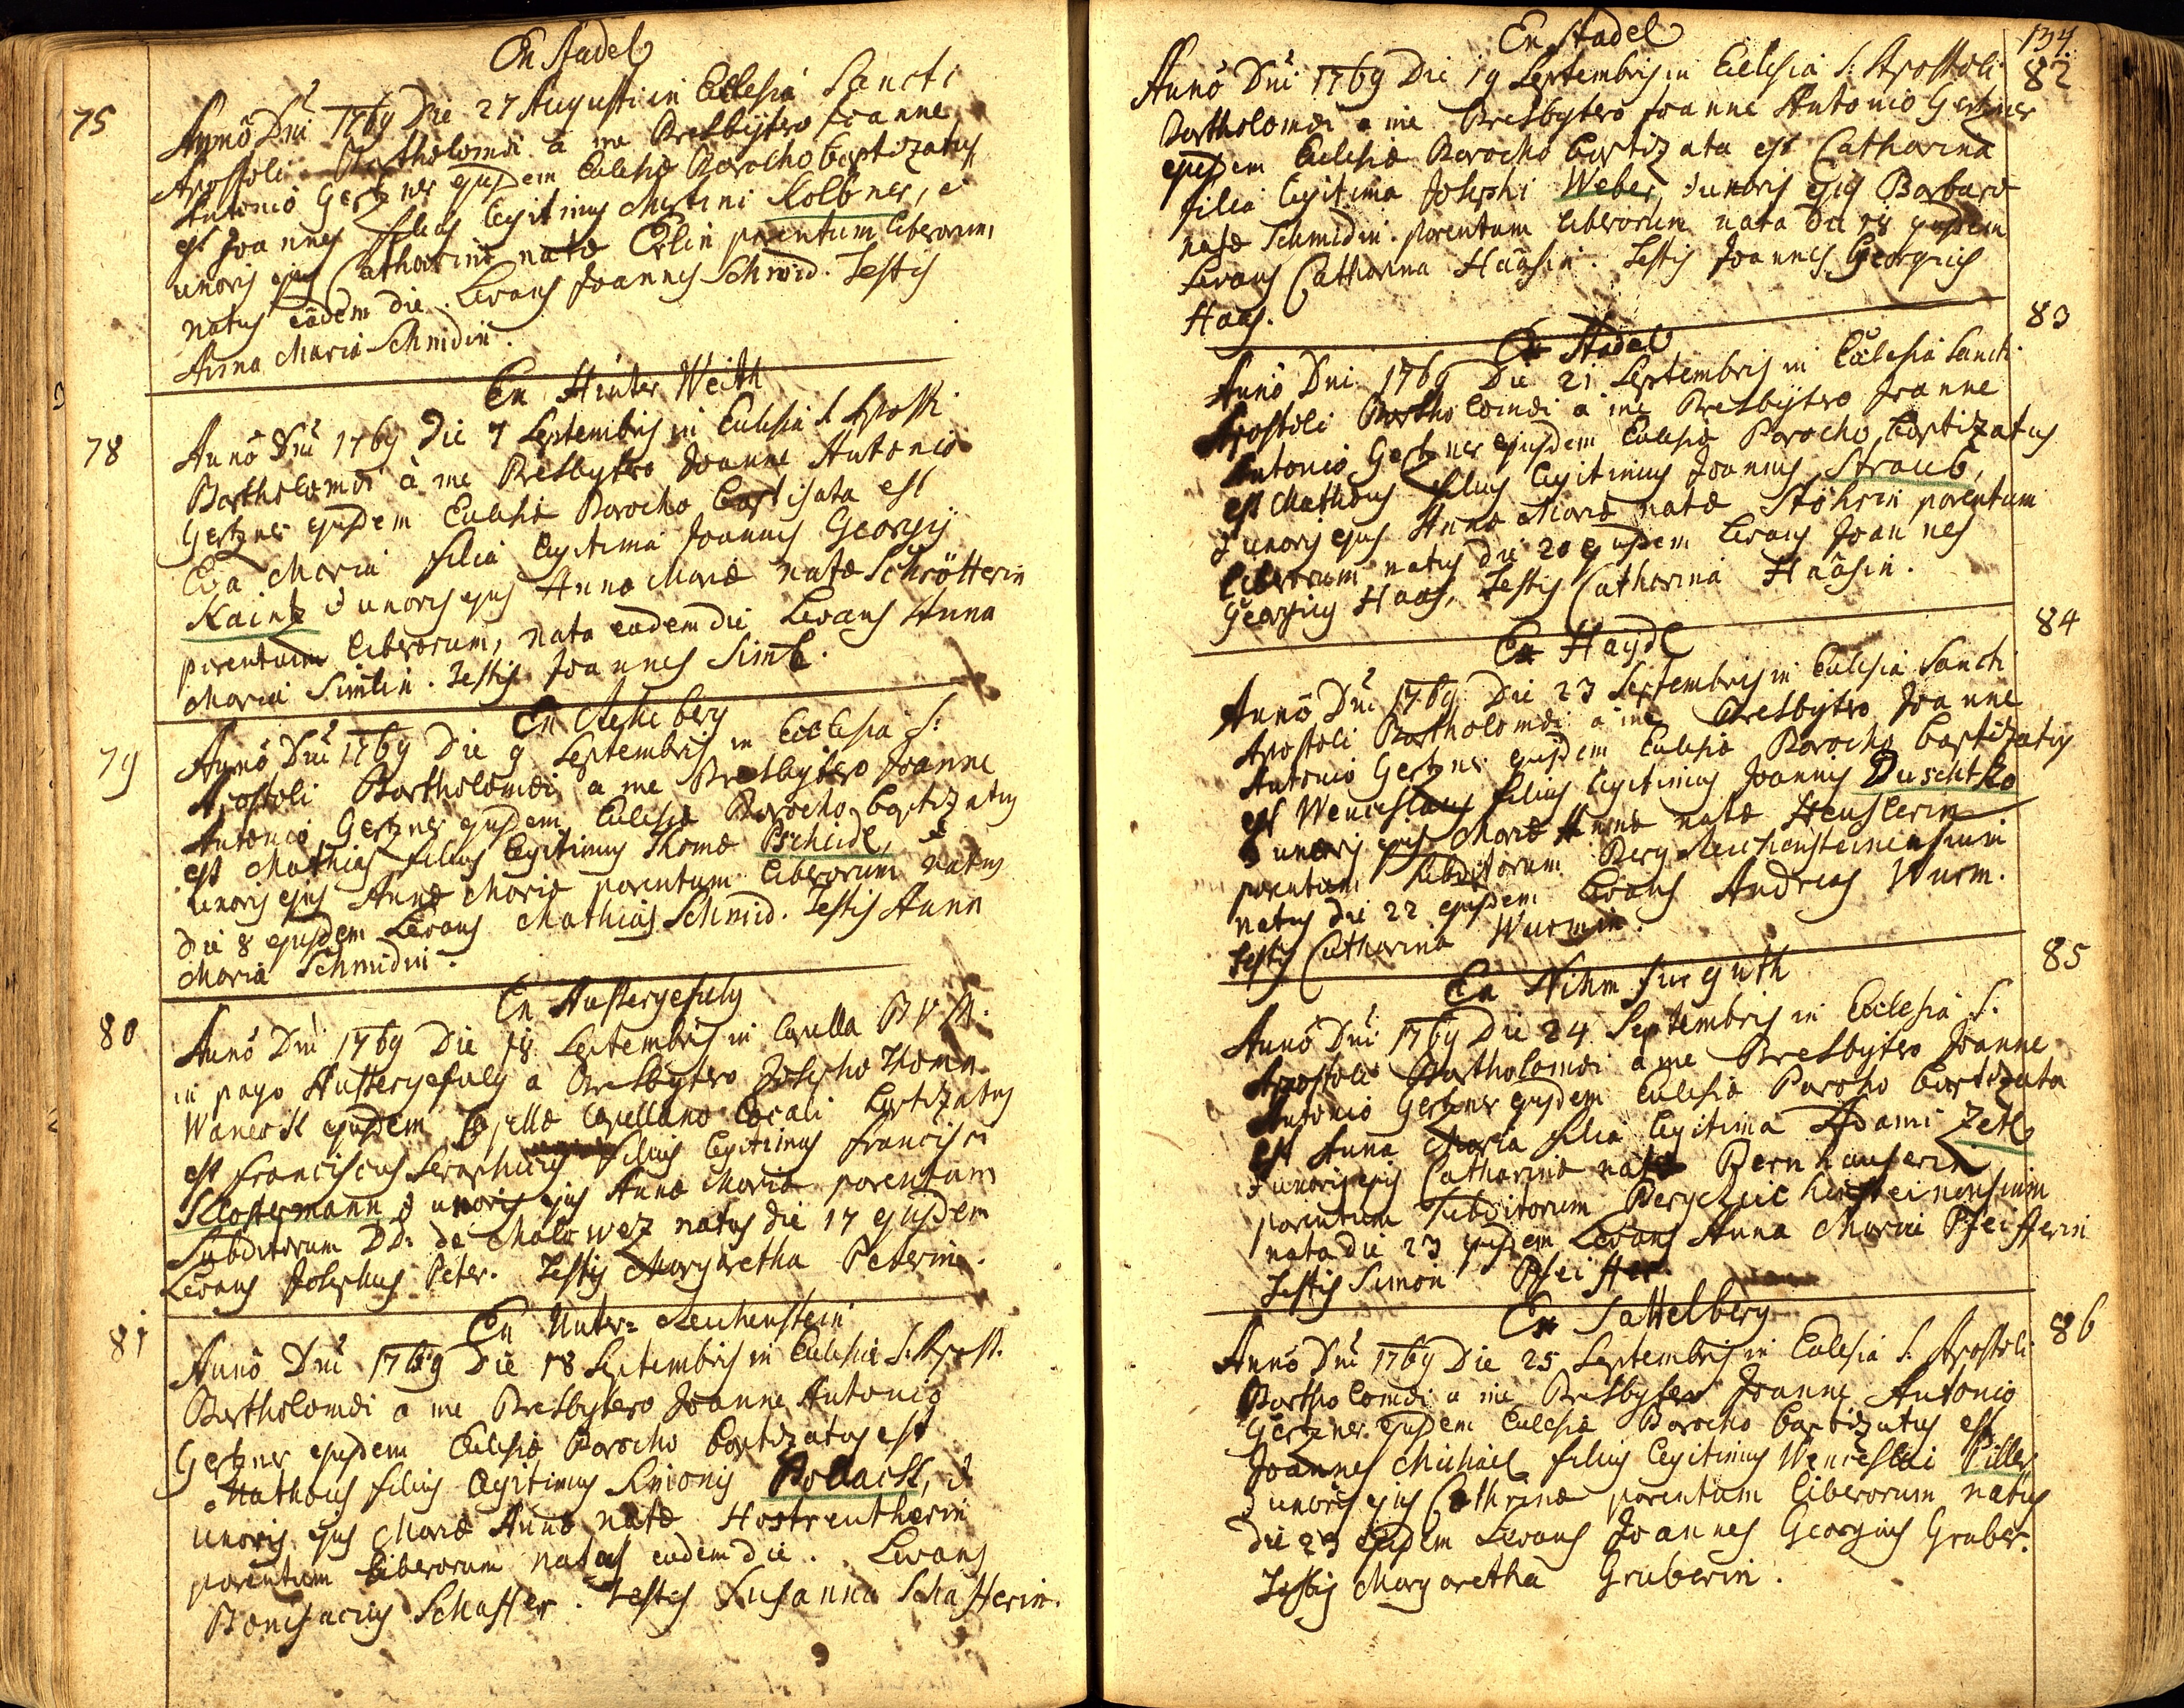 Ex Stadel
75
Anno Dni 1769 Die 27 Augusti in Ecclesia Sancti
Apostoli Bartholomæi à me Presbÿtero Joanne
Antonio Gertzner ejusdem Ecclesiæ Parocho baptizatus
est Joannes filius legitimus Martini Kolbner, et
uxoris ejus Catharinæ natæ Erlin parentum liberorum,
natus eâdem die. Levans Joannes Schmid. Testis
Anna Maria Schmidin.
Ex Hinter Weith
78
Anno Dni 1769 Die 7 Septembris in Ecclesia S. Apost.
Bartholomæi à me Presbytero Joanne Antonio
Gertzner ejusdem Ecclesiæ Parocho baptisata est
Eva Maria filia legitima Joannis Georgij
Kaintz & uxoris ejus Annæ Mariæ natæ Schrötterin
parentum liberorum, nata eadem die Levans Anna
Maria Simlin. Testis Joannes Siml.
79
Anno Dni 1769 Die 9 Septembris in Ecclesia S:
Apostoli Bartholomæi a me Presbytero Joanne
Antonio Gertzner ejusdem Ecclesiæ Parocho baptizatus
est Mathias filius legitimus Thomæ Pscheidl, et
uxoris ejus Annæ Mariæ parentum liberorum natus
die 8 ejusdem Levans Mathias Schmid. Testis Anna
Maria Schmidin.
80
Anno Dni 1769 Die 18 Septembris in Capella B V M.
in pago a Presbytero Josepho Thoma
Waneck ejusdem Capellæ Capellano Locali baptizatus
est Franciscus Seraphicus filius legitimus Francisci
Klostermann & uxoris ejus Annæ Mariæ parentum
Subditorum DD: de Malowez natus die 17 ejusdem
Levans Josephus Peter. Testis Margaretha Peterin.
Ex Unter=Reichenstein
81
Anno Dni 1769 Die 18 Septembris in Ecclesia S. Apost.
Bartholomæi a me Presbytero Joanne Antonio
Gertzner ejusdem Ecclesiæ Parocho baptizatus est
Mathæus filius legitimus Simonis Pollack, &
uxoris ejus Mariæ Annæ natæ Hostreitherin
parentum liberorum natus eadem die. Levans
Bonifacius Schaffer. Testis Susanna Schafferin.
134.
Ex Stadel
82
Anno Dni 1769 Die 19 Septembris in Ecclesia S. Apostoli
Bartholomæi a me Presbytero Joanne Antonio Gertzner
ejusdem Ecclesiæ Parocho baptizata est Catharina
filia legitima Josephi Weber, & uxoris ejus Barbaræ
natæ Schmidin. parentum liberorum nata die 18 ejusdem
Levans Catharina Haasin. Testis Joannes Georgius
Haas.
Ex Stadel
83
Anno Dni 1769 Die 21 Septembris in Ecclesia Sancti
Apostoli Bartholomæi a me Presbÿtero Joanne
Antonio Gertzner ejusdem Ecclesiæ Parocho baptizatus
est Mathæus filius legitimus Joannis Straub,
& uxoris ejus Annæ Mariæ natæ Stöhrin parentum
liberorum natus die 20 ejusdem Levans Joannes
Georgius Haas, Testis Catharina Haasin.
Ex Haydl
84
Anno Dni 1769 Die 23 Septembris in Ecclesia Sancti
Apostoli Bartholomæi a me Presbytero Joanne
Antonio Gertzner ejusdem Ecclesiæ Parocho baptizatus
est Wenceslaus filius legitimus Joannis Duschtko
& uxoris ejus Mariæ Annæ natæ Henslerin
parentum Subditorum Berg Reichensteinensium
natus die 22 ejusdem Levans Andreas Wurm.
Testis Catharina Wurmin.
85
Anno Dni 1769 Die 24 Septembris in Ecclesia S.
Apostoli Bartholomæi a me Presbytero Joanne
Antonio Gertzner ejusdem Ecclesiæ Parocho baptizata
est Anna Maria filia legitima Adami Zetl
& uxoris ejus Catharinæ natæ Bernhauserin
parentum Subditorum BergReichensteinensium
nata die 23 ejusdem Levans Anna Maria Pfeifferin
Testis Simon Pfeiffer.
Ex Sattelberg
86
Anno Dni 1769 Die 25 Septembris in Ecclesia S. Apostoli
Bartholomæi a me Presbytero Joanne Antonio
Gertzner ejusdem Ecclesiæ Parocho baptizatus est
Joannes Michael filius legitimus Wenceslai Piller
& uxoris ejus Cathrinæ parentum liberorum natus
die 23 ejusdem Levans Joannes Georgius Gruber.
Testis Margaretha Gruberin.